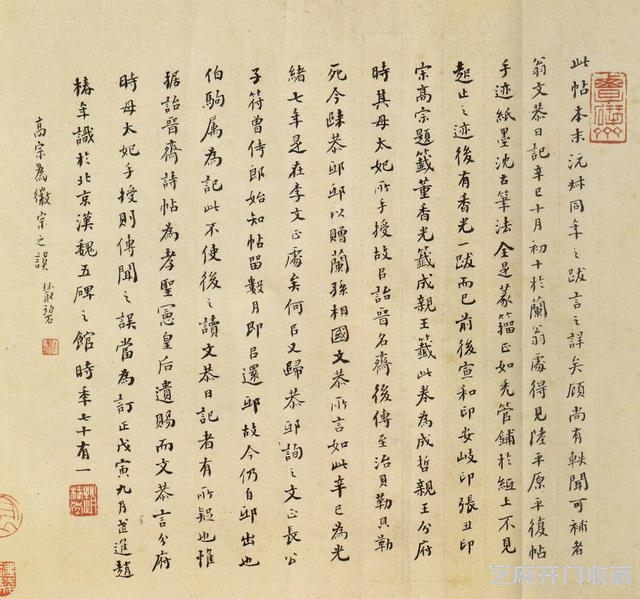 此帖本末沅叔同年之跋言之詳矣顧尚有軼聞可補者
翁文恭日記辛巳十月初十於蘭翁處得見陸平原平復帖
手迹紙墨沈古筆法全是篆籀正如禿管鋪於紙上不見
起止之迹後有香光一跋而已前後宣和印安岐印張丑印
宗高宗題籤董香光籤成親王籤此卷為成哲親王分府
時其母太妃所手授故㠯詒晉名齋後傳至治貝勒貝勒
死今歸恭邸邸以贈蘭孫相國文恭所言如此辛巳為光
緒七年是在李文正處矣何㠯又歸恭邸詢之文正長公
子符曾侍郎始知帖留數月即㠯還邸故今仍自邸出也
伯駒屬為記此不使後之讀文恭日記者有所疑也惟
据詒晉齋詩帖為孝聖憲皇后遺賜而文恭言分府
時母太妃手授則傳聞之誤當為訂正戊寅九月 進趙
椿年識於北京漢魏五碑之館時年七十有一
高宗為徽宗之誤
芝麻开门收藏